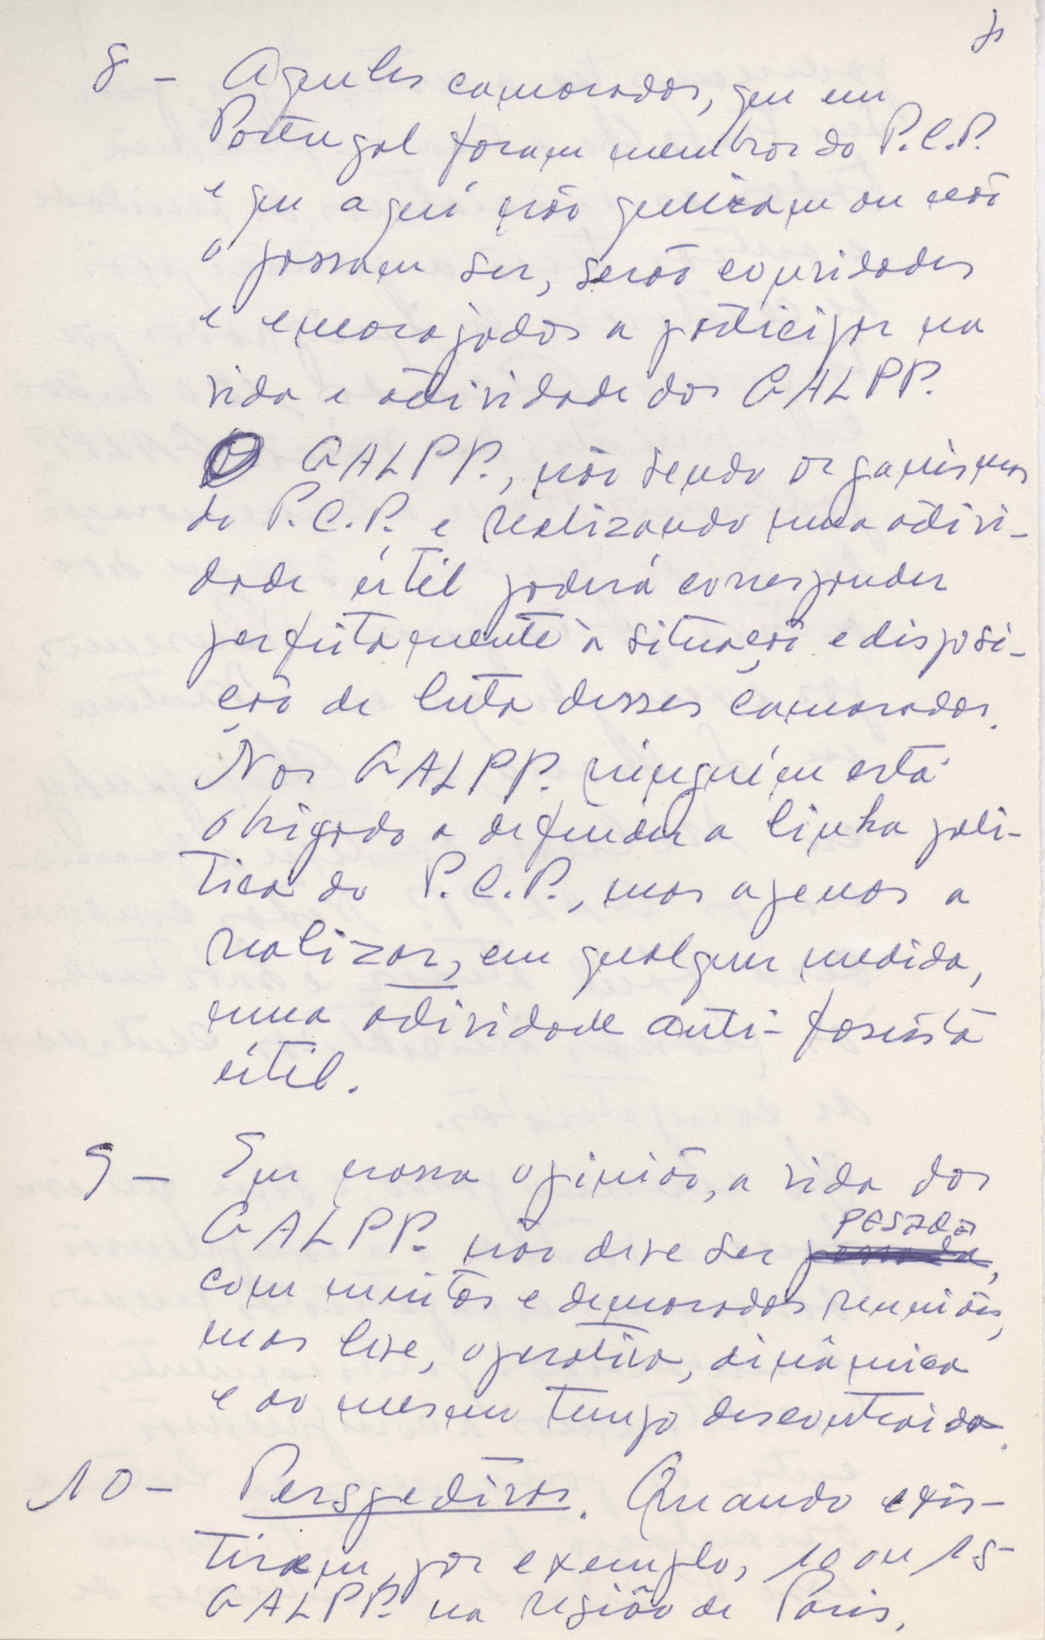 8 - Aqueles camaradas, que em
Portugal foram membros do P.C.P.
e que aqui não queiram ou não
o possam ser, serão convidados
e encorajados a participar na
vida e actividade dos GALPP.
O GALPP., não sendo organismos
do P.C.P. e realizando uma activi-
dade útil poderá corresponder
perfeitamente à situação e disposi-
ção de luta desses camaradas.
Nos GALPP. ninguém está
obrigado a defender a linha polí-
tica do P.C.P., mas apenas a
realizar, em qualquer medida,
uma actividade anti-fascista
útil.
9 - Em nossa opinião, a vida dos
GALPP. não deve ser pesada
com muitas e demoradas reuniões,
mas leve, operativa, dinâmica
e ao mesmo tempo descontraida.
10 - Perspectivas. Quando exis-
tirem, por exemplo, 10 ou 15
GALPP. na região de Paris,